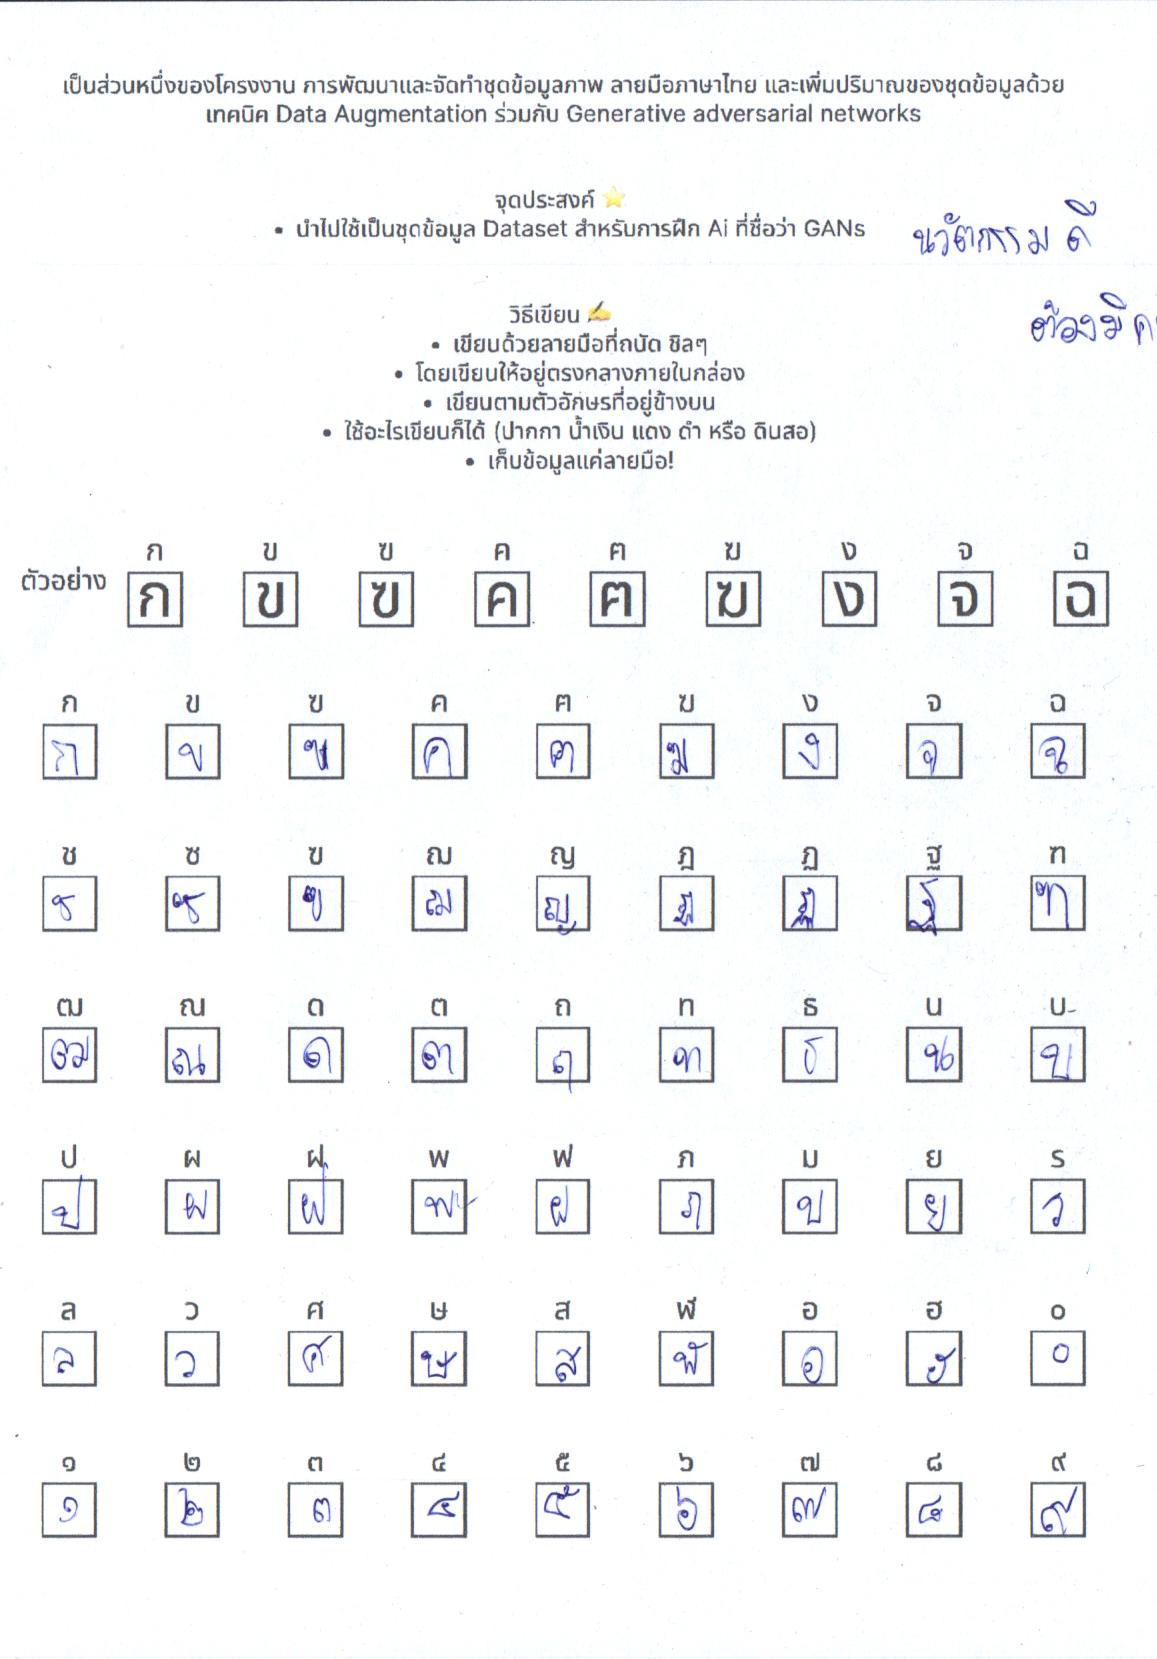 เป็นส่วนหนึ่งของโครงงาน การพัฒนาและจัดทำชุดข้อมูลภาพ ลายมือภาษาไทย และเพิ่มปริมาณของชุดข้อมูลด้วย
เทคนิค Data Augmentation ร่วมกับ Generative adversarial networks
จุดประสงค์ ⭐
• นำไปใช้เป็นชุดข้อมูล Dataset สำหรับการฝึก Ai ที่ชื่อว่า GANs
นวัตกรรม ดี
ต้องมี
วิธีเขียน ✍
• เขียนด้วยลายมือที่ถนัด ชิลๆ
• โดยเขียนให้อยู่ตรงกลางภายในกล่อง
• เขียนตามตัวอักษรที่อยู่ข้างบน
• ใช้อะไรเขียนก็ได้ (ปากกา น้ำเงิน แดง ดำ หรือ ดินสอ)
• เก็บข้อมูลแค่ลายมือ!
ก ข ฃ ค ฅ ฆ ง จ ฉ
ตัวอย่าง ก ข ฃ ค ฅ ฆ ง จ ฉ
ก ข ฃ ค ฅ ฆ ง จ ฉ
ก ข ฃ ค ฅ ฆ ง จ ฉ
ช ซ ฃ ฌ ญ ฎ ฏ ฐ ฑ
ช ซ ฃ ฌ ญ ฎ ฏ ฐ ฑ
ฒ ณ ด ต ถ ท ธ น บ
ฒ ณ ด ต ฤ ท ธ น บ
ป ผ ฝ พ ฟ ภ ม ย ร
ป ผ ฝ พ ฝ ภ บ ย ว
ล ว ศ ษ ส ฬ อ ฮ ๐
ล ว ศ ษ ส ฬ อ ฮ ๐
๑ ๒ ๓ ๔ ๕ ๖ ๗ ๘ ๙
๑ ๒ ๓ ๔ ๕ ๖ ๗ ๘ ๙